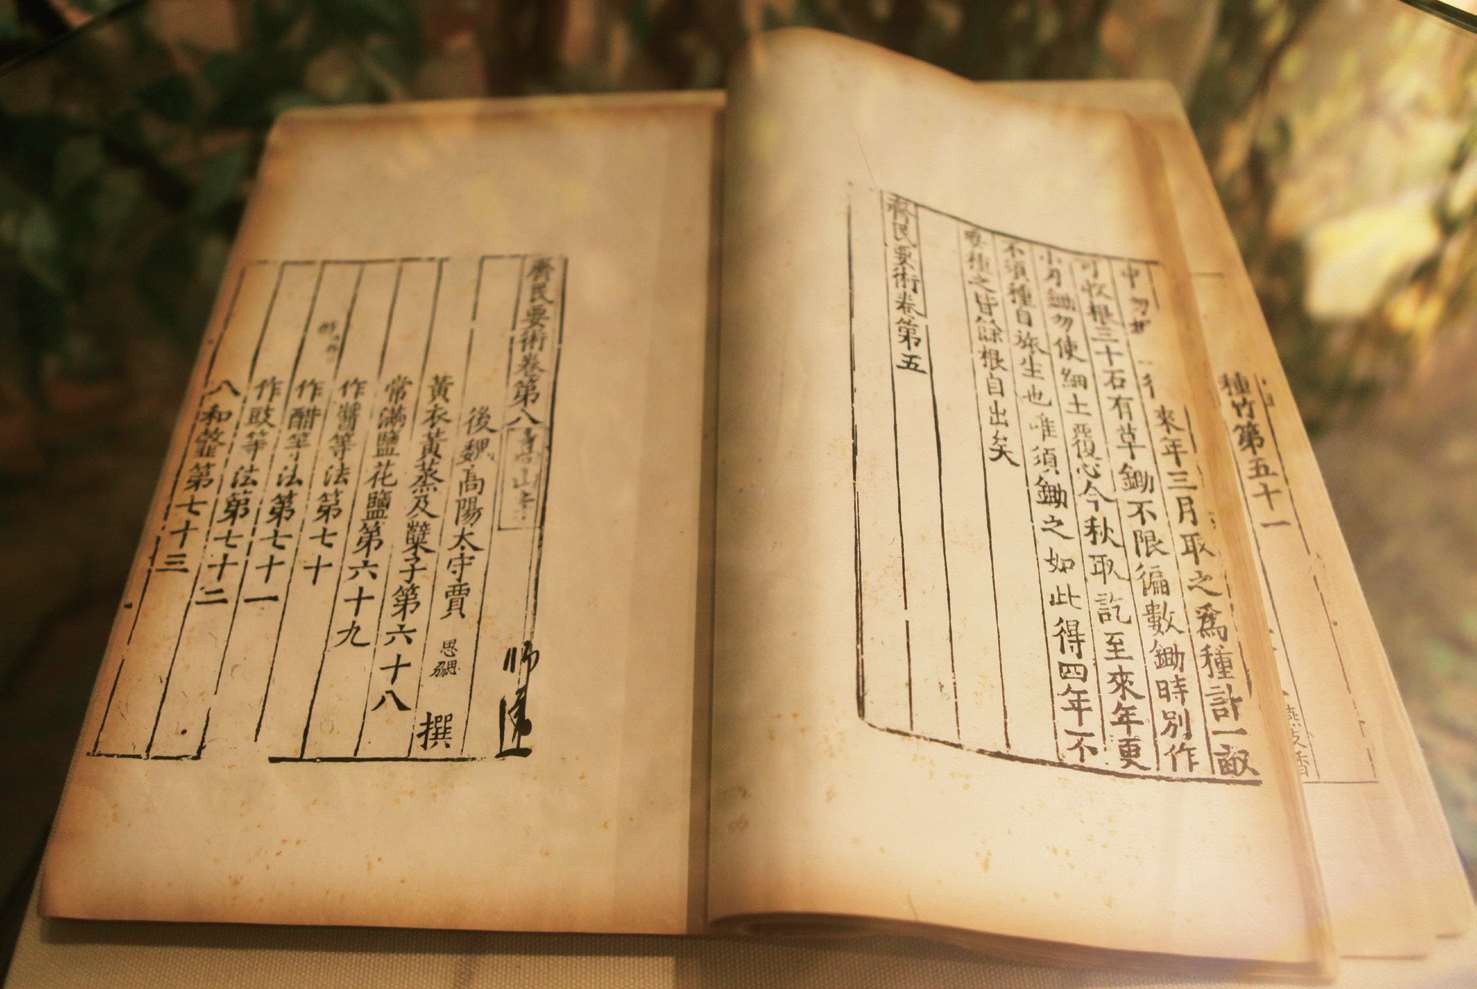 種竹第五十一
來年三月取之爲種計一畝
可收根三十石有草鋤不限徧數鋤時別作
小刃鋤勿使細土覆心今秋取訖至來年更
不須種自旅生也唯須鋤之如此得四年不
要種之皆餘根自出矣
齊民要術卷第五
齊民要術卷第八
後魏高陽太守賈思勰撰
黃衣黃蒸及糱子第六十八
常滿鹽花鹽第六十九
作醬等法第七十
作酢等法第七十一
作豉等法第七十二
八和虀第七十三